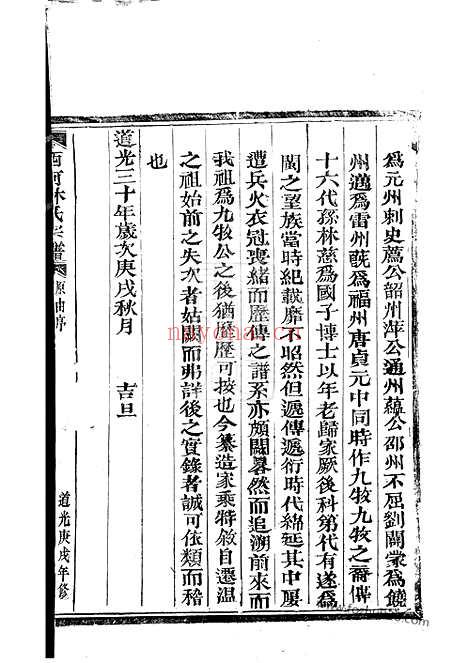 為元州刺史薦公韶州萍公通州蘊公邵州不屈劉闢蒙為饒
州邁為雷州既為福州唐貞元中同時作九牧九牧之裔傳
十六代孫林慈為國子博士以年老歸家厥後科第代有遂為
閩之望族當時紀載靡不昭然但遞傳遞衍時代綿延其中屢
遭兵火衣冠喪緒而歷傳之譜系亦頗闕畧然而追溯前來而
我祖為九牧公之後猶歷歷可按也今纂造家乘特敘自遷溫
之祖始前之失次者姑闕而弗詳後之實錄者誠可依類而稽
也
道光三十年歲次庚戌秋月 吉旦
西河林氏宗譜 原由序 道光庚戌年修
nayona.cn